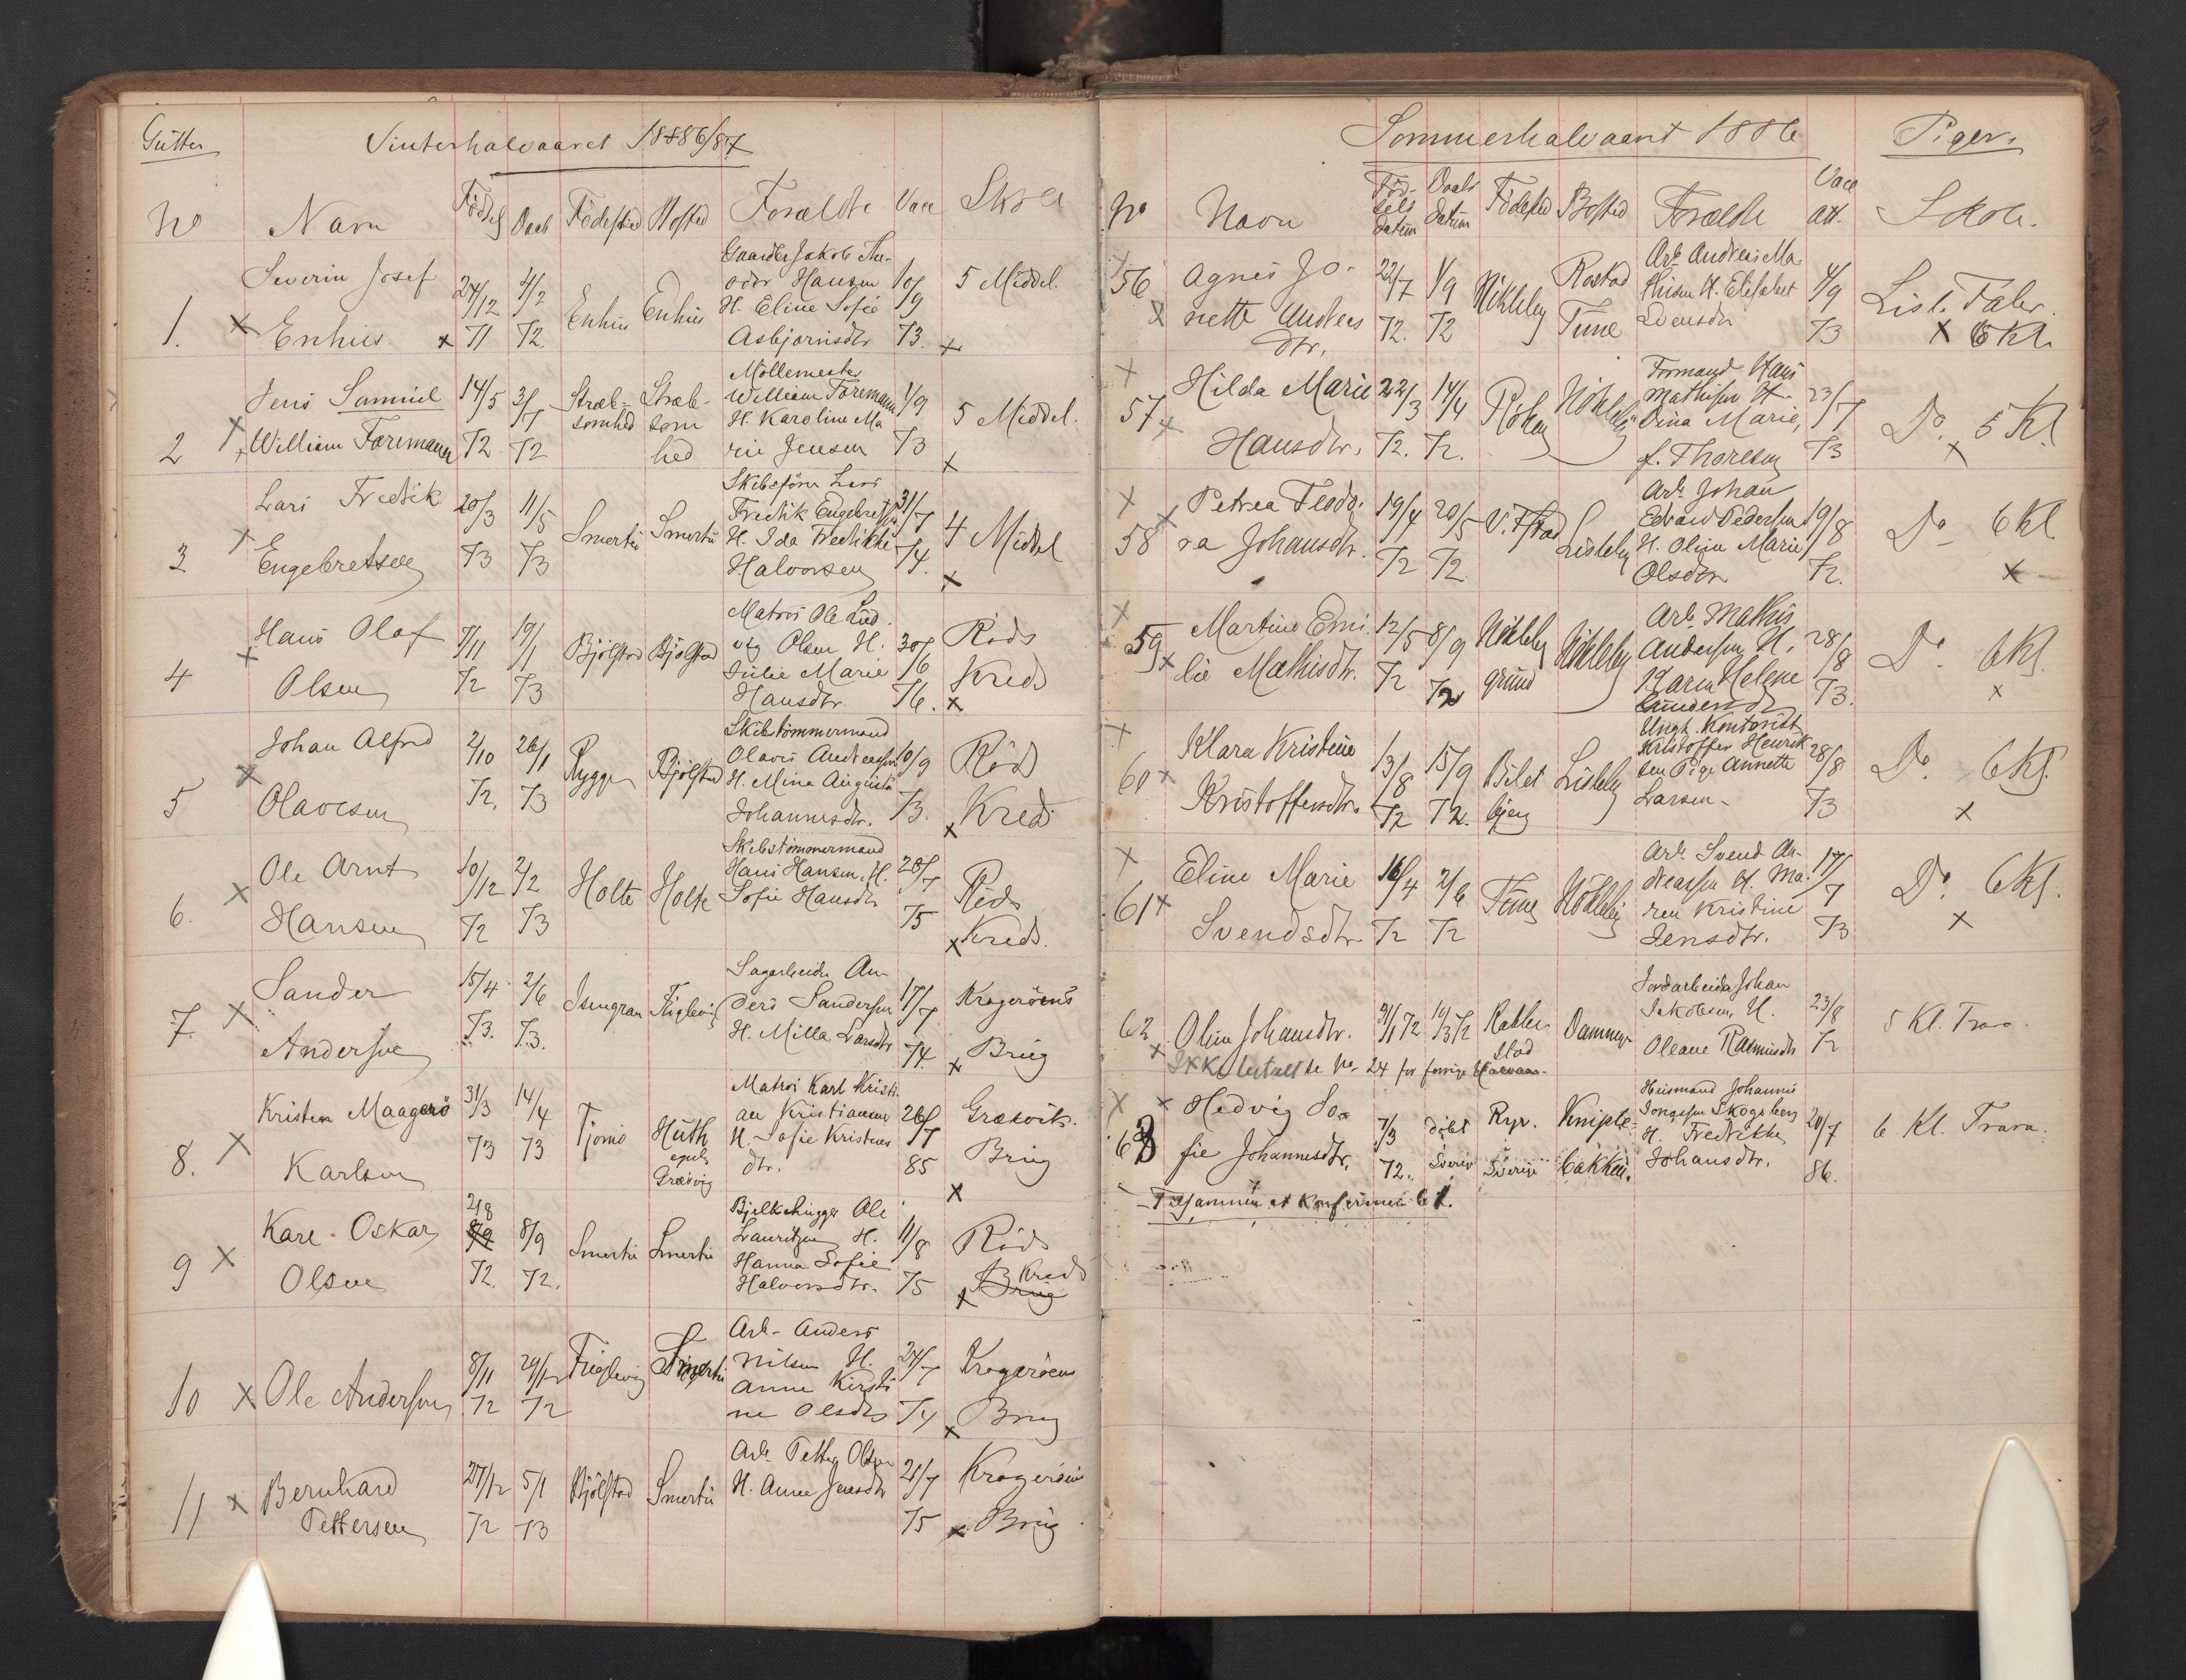 Gutter
Vinterhalvaaret 1886/87
No Navn Fødsel Daab Fødested Bosted Forældre Vacc Skole
1. Severin Josef Enhus 24/12 71 4/2 72. Enhus Enhus Gaardbr Jakob The-
odor Hansen
H. Eline Sofie
Asbjørnsdtr 10/9 73. 5 Middel.
2 Jens Samuel
William Foremann 14/5 72 3/7 72 Stræb-
somhed Stræb-
som
hed Møllemester
William Foremann
H. Karoline Ma
rie Jensen 1/9 73 5 Middel.
3 Lars Fredrik
Engebretsen 20/3 73 11/5 73 Smertu Smertu Skibsfører Lars
Fredrik Engebretsen
H. Ida Fredrikke
Halvorsen 31/7 74. 4 Middel
4 Hans Olaf
Olsen 7/11 72 19/1 73 Bjølstad Bjølstad Matros Ole Lud
vig Olsen H.
Julie Marie
Hansdtr. 30/6 76. Røds
Kreds
5 Johan Alfred
Olavesen 2/10 72. 26/1 73 Rygge Bjølstad Skibstømmermand
Olaves Andreassen
H. Mina Augusta
Johannesdtr. 10/9 73. Røds
Kreds
6. Ole Arnt
Hansen 10/12 72 2/2 73 Holte Holte Skibstømmermand
Hans Hansen, H.
Sofie Hansdtr 28/7 75 Røds
Kreds.
7. Sander
Andersen 15/4 73. 2/6 73. Fuglevig Sagarbeider An
ders Sandersen
H. Milla Larsdtr 17/7 74. Kragerøens
Brug
8. Kristen Maagerø
Karlsen 31/3 73 14/4 73 Tjømø Huth
Græsvig Matros Karl Kristi
an Kristiansen
H. Sofie Kristens
dtr. 26/7 85 Græsvik.
Brug
9 Karl Oskar
Olsen 21/8 72. 8/9 72. Smertu Smertu Bjelkehugger Ole
Lauritzen H.
Hanna Sofie
Halvorsdtr. 11/8 75 Røds
Kreds
Brug
10 Ole Andersen 8/11 72 29/12 72 Fuglevig Smertu Arb. Anders
Nilsen H.
Anne Kirsti
ne Olsdtr 24/7 74 Kragerøens
Brug
11 Bernhard
Pettersen 27/12 72 5/1 73 Bjølstad Smertu Arb. Petter Olsen
H. Anne Jensdtr 21/7 75 Kragerøens
Brug
Sommerhalvaaret 1886 Piger.
No Navn Fød-
sels
datum Daabs
datum Fødested Bosted Forældre Vacc
att. Skole.
56 Agnes Jo-
nette Andreas
dtr. 22/7 72. 1/9 72 Nökleby Rostad
Tune Arb. Andreas Ma
thisen H. Elisabet
Svensdtr 4/9 73 Lisl. Faler.
6 Kl.
57 Hilda Marie
Hansdtr. 22/3 72. 14/4 72. Røken Nökleby Formand Hans
Mathisen H.
Dina Marie,
f. Thoresen 23/7 73 Do. 5 Kl.
58 Petrea Teodo-
ra Johansdtr. 19/4 72 20/5 72 V. Fstad Lisleby Arb. Johan
Edvard Pedersen
H. Oline Marie
Olsdtr 19/8 72. Do 6 Kl
59 Martine Emi-
lie Mathisdtr. 12/5 72 8/9 72 Nökleby
grund Nökleby Arb. Mathis
Andersen H.
Karen Helene
Gundersd 28/8 73. Do. 6 Kl.
60 Klara Kristine
Kristoffersdtr. 13/8 72 15/9 72. Bilet
bjerg Lisleby Ungk. Kontorist
Kristoffer Henrik
sen Pige Annette
Larsen- 28/8 73 Do. 6 Kl.
61 Eline Marie
Svendsdtr 16/4 72 2/6 72 Tune Nökleby Arb. Svend An-
dreassen H. Ma-
ren Kristine
Jensdtr. 17/7 73 Do. 6 Kl.
62 Oline Johansdtr. 31/1 72 10/3 72 Rakke
stad Dammyr Jordarbeider Johan
Jakobsen, H.
Oleane Rasmusdtr 23/8 72 5 Kl. Trara.
Ikke betalt se No 24 for forrige Halvaar.
63 Hedvig So-
fie Johannesdtr. 7/3 72. døbt
Sverig Ryr.
Sverige Kniple-
bakken. Husmand Johannes
Jonassen Skogsberg
H. Fredrikke
Johansdtr. 20/7 86. 6 Kl. Trara.
Tilsammen at Konfirmere 61.